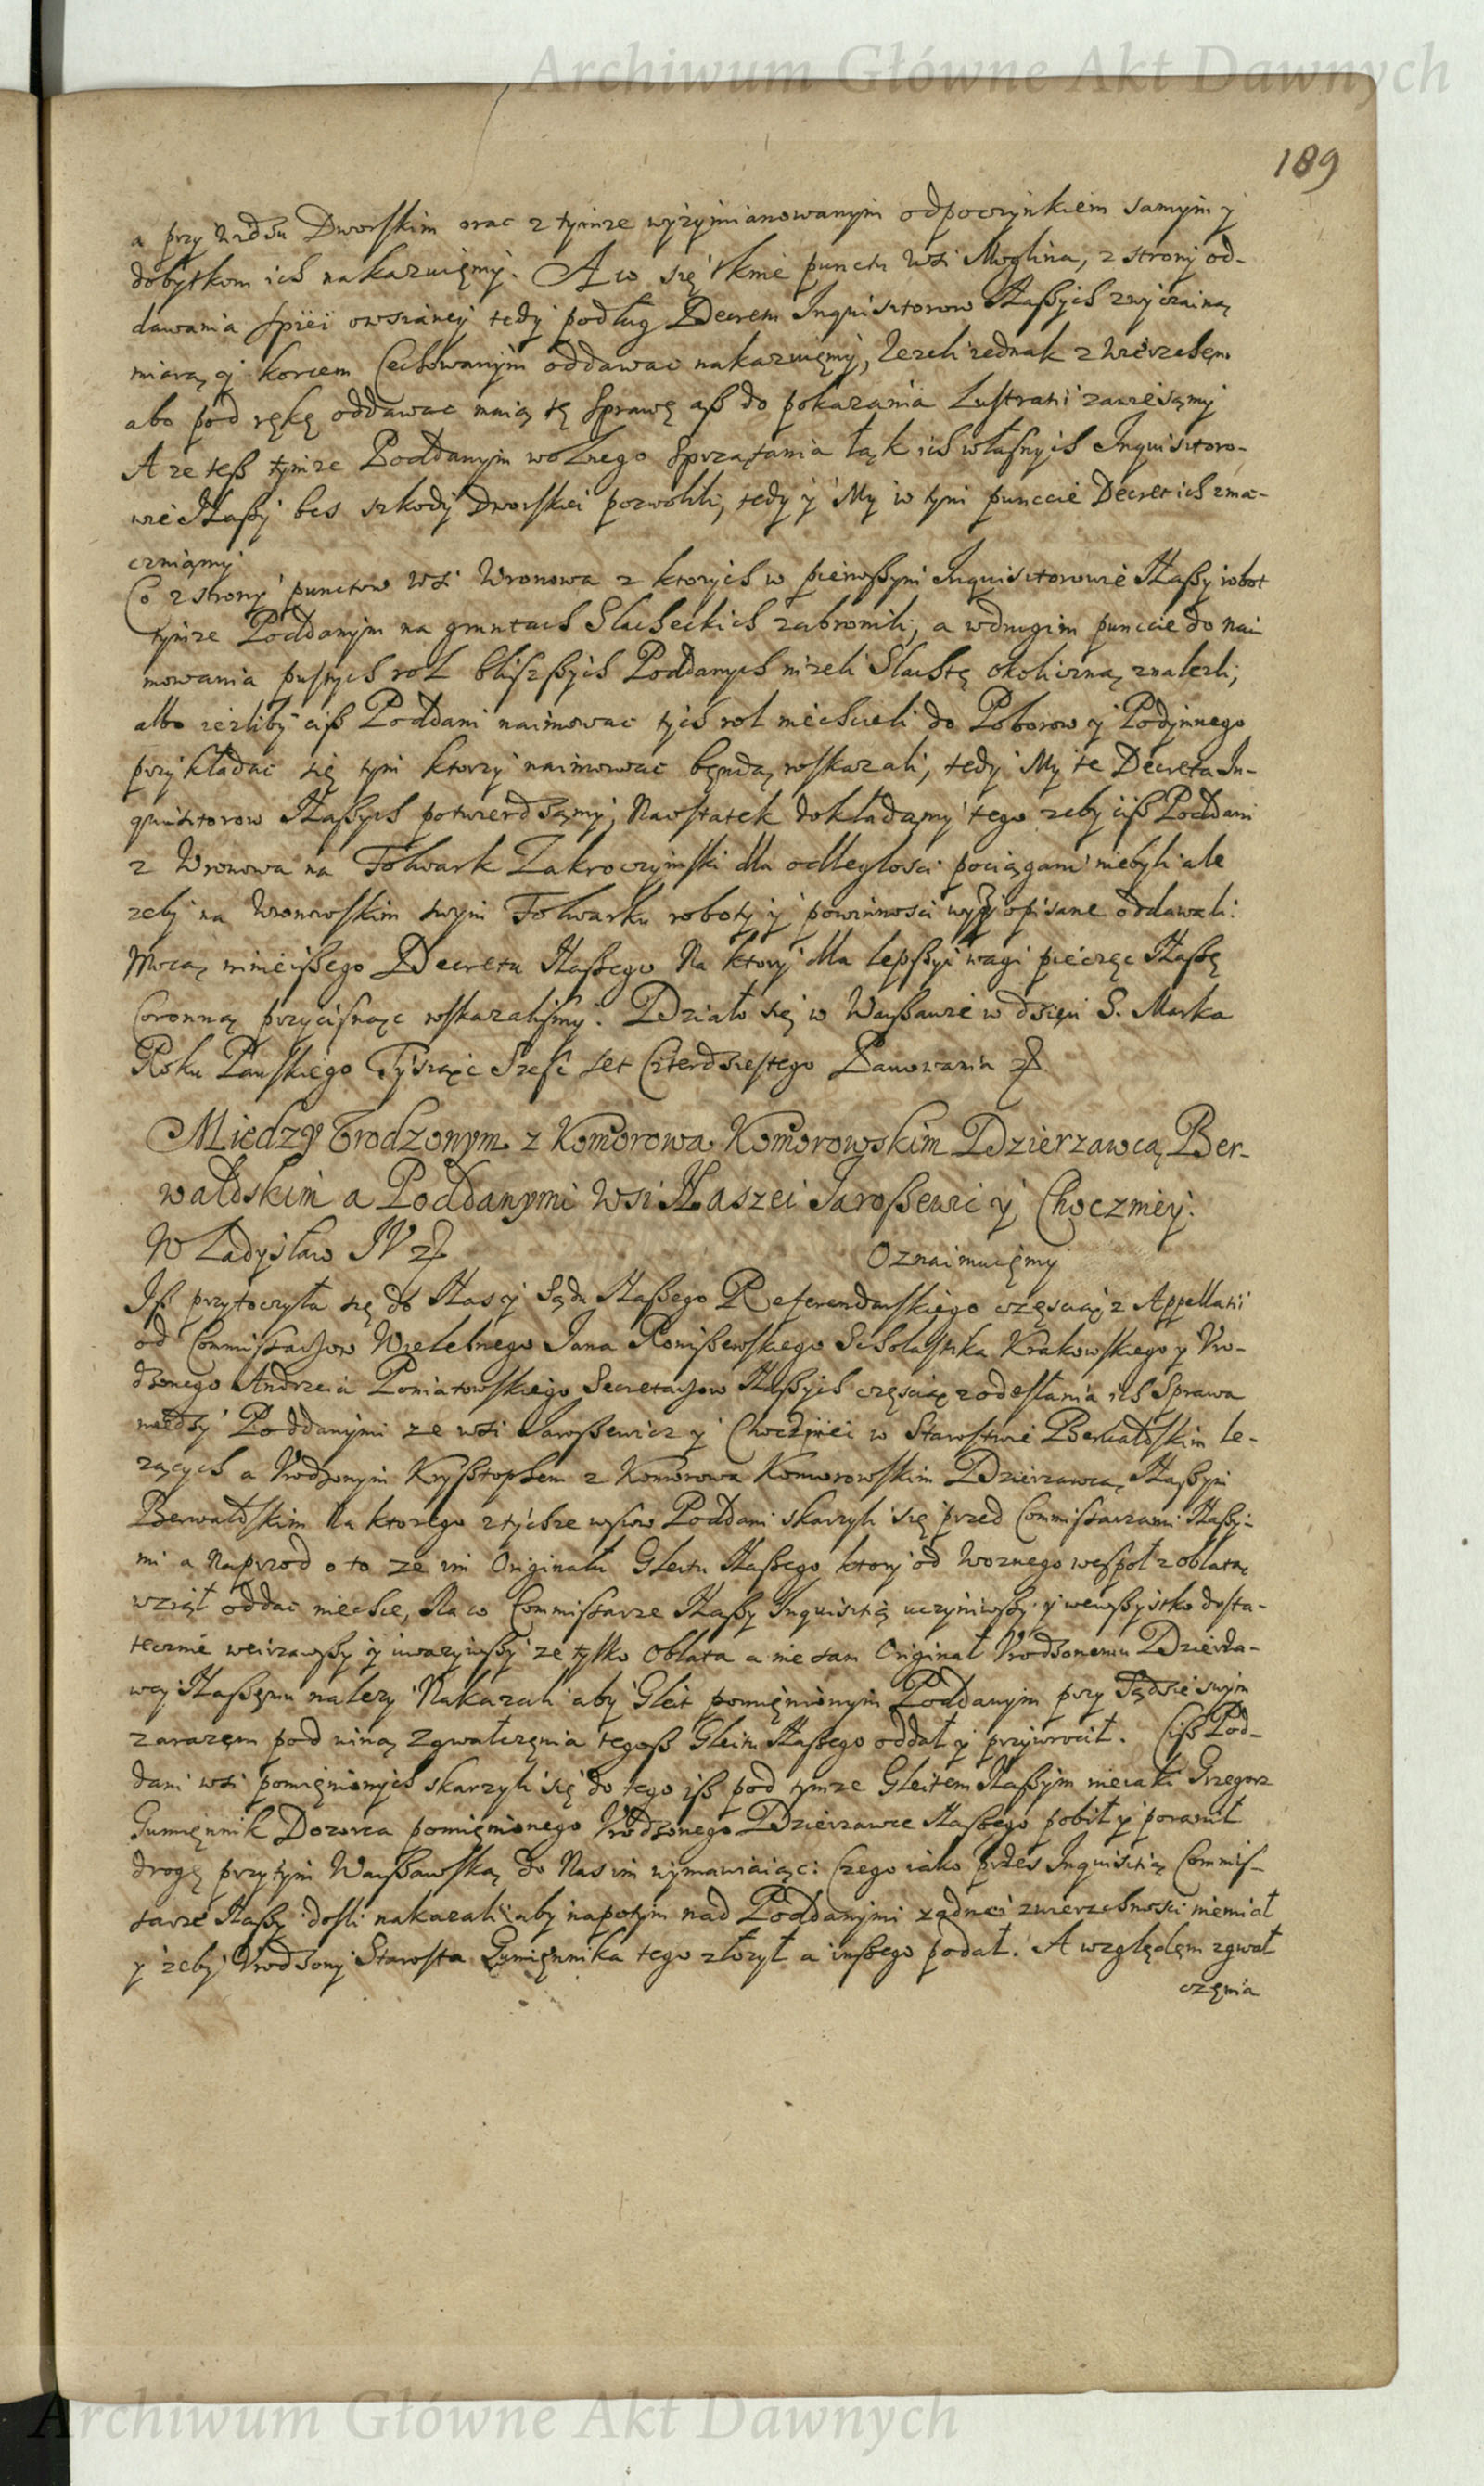 Archiwum Główne Akt Dawnych
189
a przy Urdsu Dworskim orac z tymze wyzymianowanym odpoczynkiem samym y
dobytkom ich nakazuięmy. A co się tknie punctu Wsi Moglina, z strony od-
dawania spiei owsianey tedy podług Decretu Inquisitorow Naßych zwyczainą
miarą y korcem Cechowanym oddawac nakazuięmy, Iezeli iednak z wierzchęm
abo pod rękę oddawac maią tę sprawę aß do pokazania Lustratii zawieszamy
A ze teß tymze Poddanym wolnego sprzątania łąk ich własnych Inquisitoro-
wie Naßy bes szkody Dworskiei pozwolili, tedy y My w tym punccie Decret ich zma-
czniąmy
Co z strony punctow Wsi Wronowa z ktorych w pierwßym Inquisitorowie Naßy robot
tymze Poddanym na gruntach Slacheckich zabronili, a w drugim punccie do nai
mowania pustych rol bliszßych Poddanych nizeli Slachtę okoliczną znalezli;
albo iezliby ciß Poddani naimowac tych rol niechcieli do Poborow y Podymnego
przykładac się tym ktorzy naimowac bęndą wskazali, tedy My te Decreta In-
quisitorow Naßych potwierdząmy; Naostatek dokładamy tego zeby ciß Poddani
z Wronowa na Folwark Zakroczymski dla odległosci pociągani niebyli ale
zeby na Wronowskim swym Folwarku roboty y powinnosci wyßy opisane oddawali.
Mocą ninieißego Decretu Naßego Na ktory dla lepßyi wagi pieczęc Naßę
Coronną przycisnąc wskazalismy. Działo się w Warßawie w dzięn S. Marka
Roku Panskiego Tysiąc Szesc set Czterdziestego Panowania etc
Miedzy Urodzonym z Komorowa Komorowskim Dzierzawcą Ber-
wałdskim a Poddanymi Wsi Naszei Iaroßewic y Choczniey.
Wladysław IV etc Oznaimuięmy
Iß przytoczyła się do Nas y Sądu Naßego Referendarskiego częscią z Appellatii
od Commissarzow Wielebnego Iana Romißewskiego Scholastika Krakowskiego y Uro-
dzonego Andrzeia Poniatowskiego Secretarzow Naßych częscią z odesłania ich Sprawa
między Poddanymi ze wsi Iaroßewicz y Choczniei w Starostwie Berwałdskim le-
zących a Urodzonym Krysztophem z Komorowa Komorowskim Dzierzawcą Naßym
Berwałdskim Na ktorego z tychze wsiow Poddani skarzyli się przed Commissarzami Naßy-
mi a Naprzod o to ze im Originału Gleitu Naßego ktory od Woznego wespoł z oblatą
wziął oddac niechce, Na co Commissarze Naßy Inquisitią uczyniwßy y wewßystko dosta-
tecznie weirzawßy y uwazywßy ze tylko Oblata a nie sam Originał Urodzonemu Dzierza-
wcy Naßęmu nalezy Nakazali aby Gleit pomięnionym Poddanym przy Sądzie swym
zarazęm pod winą zgwałczęnia tegoß Gleitu Naßego oddał y przywrocił. Ciß Pod-
dani wsi pomięnionych skarzyli się do tego yß pod tymze Gleitem Naßym nieiaki Grzegorz
Gumięnnik Dozorca pomięnionego Urodzonego Dzierzawce Naßego pobił y poranił
drogę przytym Warßawską do Nas im wymawiaiąc: Czego iako przes Inquisitią Commis-
sarze Naßy dosli nakazali aby napotym nad Poddanymi zadnei zwierzchnosci niemiał
y zeby Urodzony Starosta Gumięnnika tego złozył a inßego podał. A względęm zgwał
częnia
Archiwum Główne Akt Dawnych